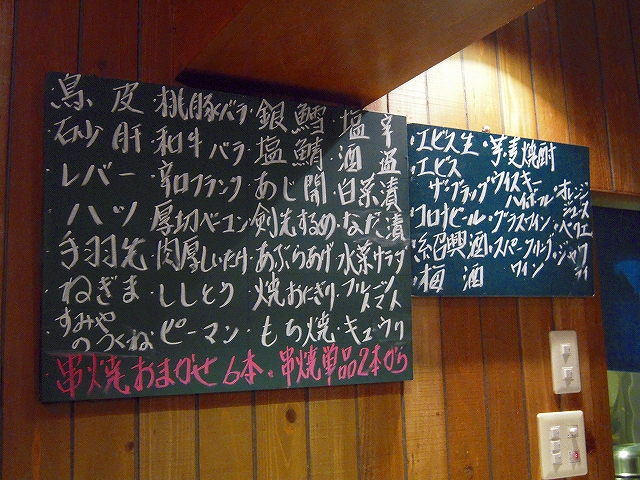 鳥皮・桃豚バラ・銀鱈・塩辛
砂肝・和牛バラ・塩鯖・酒盗
レバー・辛口フランク・あじ開・白菜漬
ハツ・厚切ベーコン・剣先するめ・なた漬
手羽先・肉厚しいたけ・あぶらあげ・水菜サラダ
ねぎま・ししとう・焼おにぎり・フルーツトマト
すみやのつくね・ピーマン・もち焼・キュウリ
串焼おまかせ6本・串焼単品2本から
・エビス生・芋麦焼酎
・エビスザ・ブラック・ウイスキーハイボール・オレンジジュース
・コロナビール・グラスワイン・ペリエ
・紹興酒・スパークリングワイン・ジャワティ
・梅酒